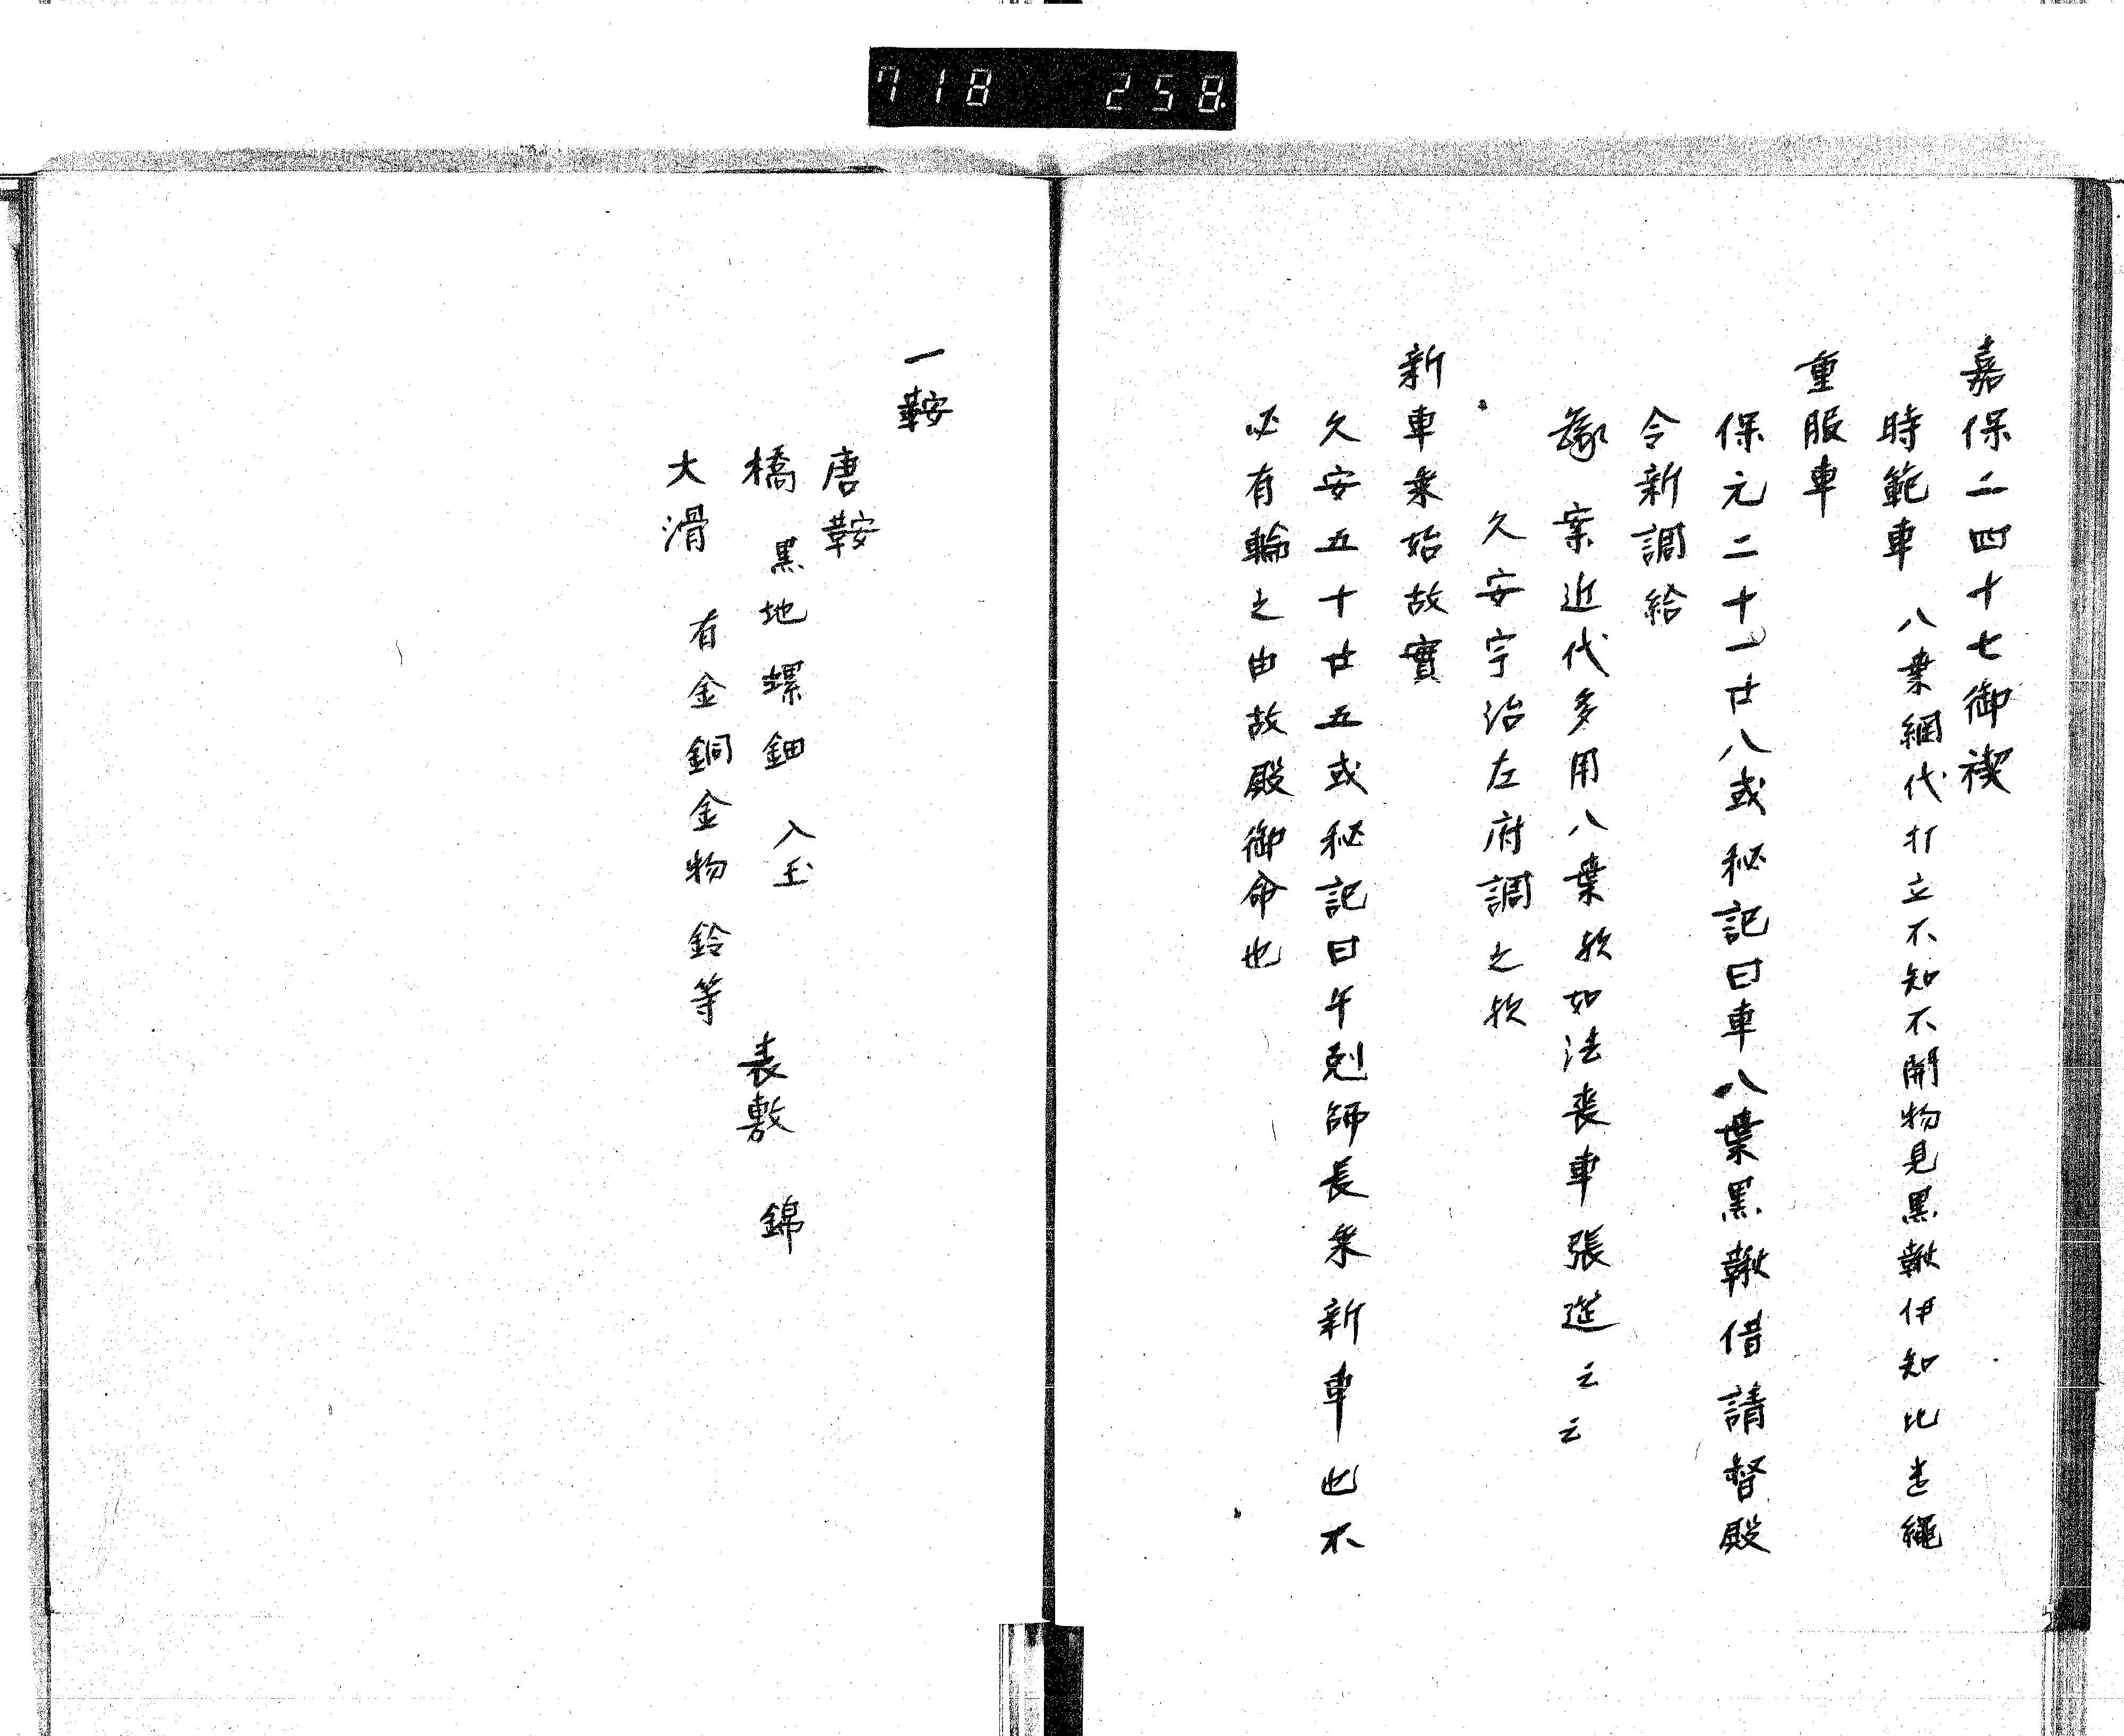 718 258
嘉保二四十七御禊
時範車 八葉網代打立不知不開物見黒鞦伊知比遣繩
重服車
保元二十一廿八或秘記曰車八葉黒鞦借請督殿
令新調給
案近代多用八葉欤如法喪車張莚云云
久安宇治左府調之欤
新車乗始故實
久安五十廿五或秘記曰午剋師長乗新車也不
必有輪之由故殿御命也
一鞍
唐鞍
橋 黒地螺鈿 入玉 表敷 錦
大滑 有金銅金物 鈴等